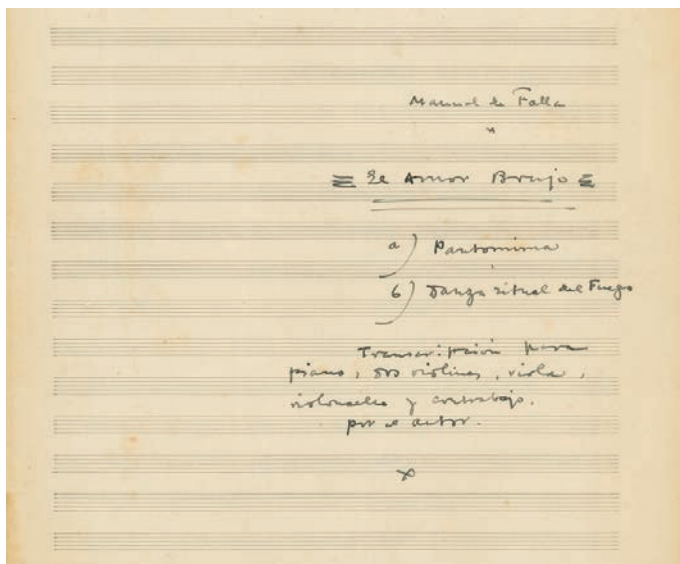 Manuel de Falla
El Amor Brujo
a) Pantomima
b) Danza ritual del Fuego
Transcripción para
piano, dos violines, viola,
violoncello y contrabajo.
por el autor.